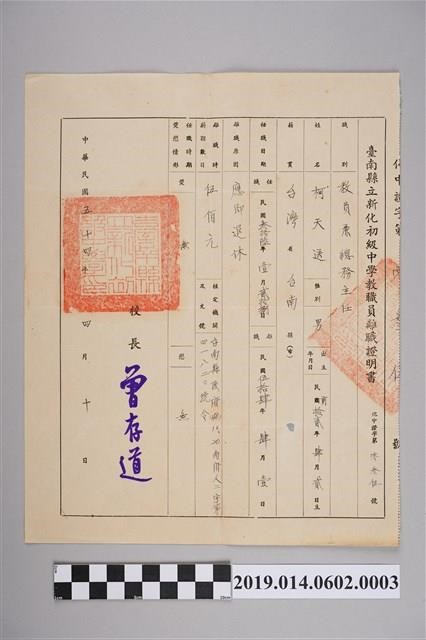 化中證字第
號
臺南縣立新化初級中學教職員離職證明書
化中證字第 號
職別 教員兼總務主任
姓名 柯天送 性別 男 出生年月日 民國前拾貳年肆月貳日生
籍貫 台灣省台南縣(市)
任職日期 任職 民國 年壹月 日 離職 民國伍拾肆年肆月壹日
離職原因 應即退休
離職時薪額數目 伍佰元 核定機關及文號 台南縣政府
令
任職時期獎懲情形 獎 無 懲 無
校長 曾存道
中華民國五十四年四月十日
2019.014.0602.0003